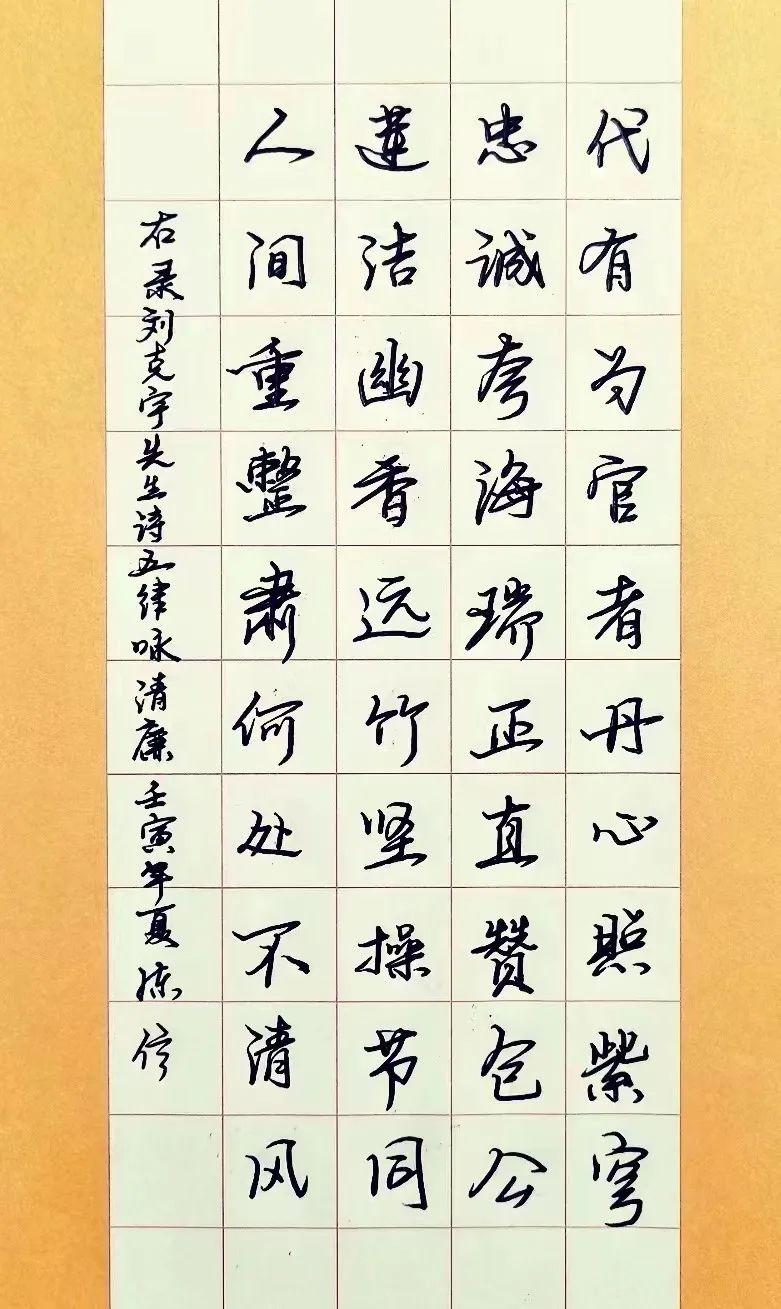 代有为官者丹心照紫穹
忠诚夸海瑞正直赞包公
莲洁幽香远竹坚操节同
人间重整肃何处不清风
右录刘克宇先生诗五律咏清廉壬寅年夏陈信